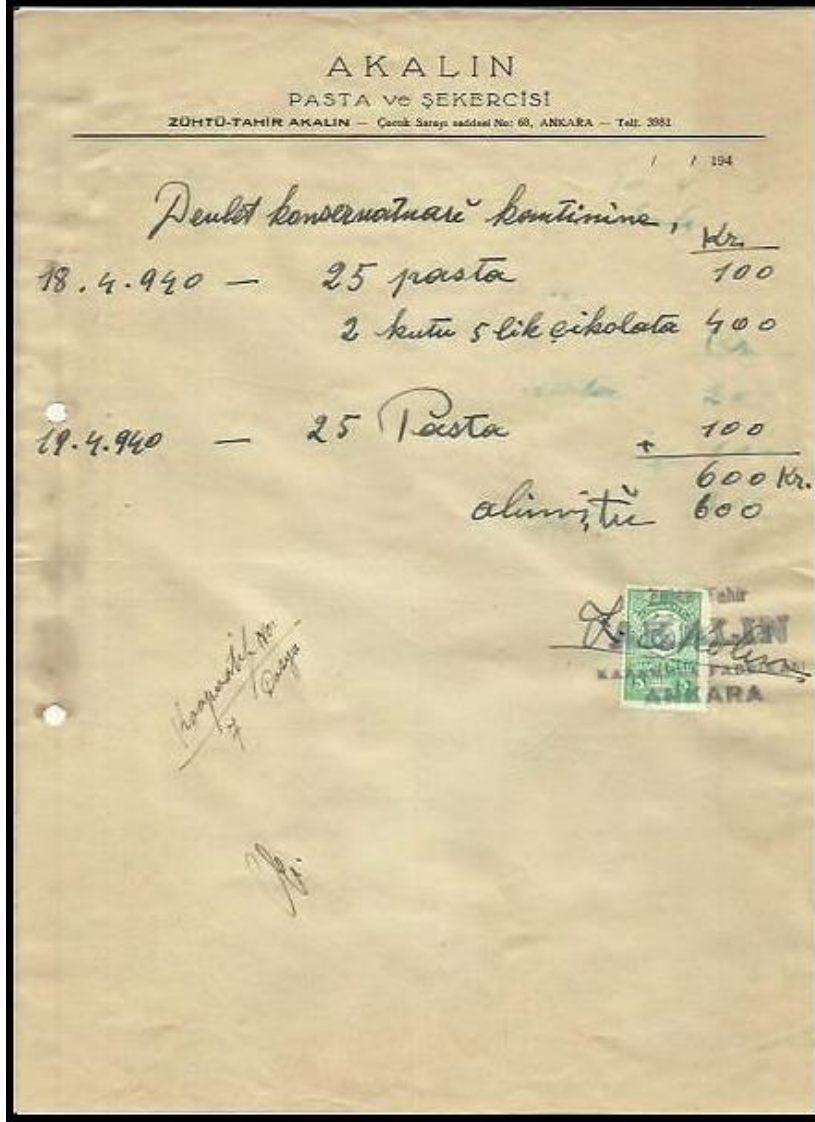 AKALIN
PASTA ve ŞEKERCİSİ
ZÜHTÜ-TAHİR AKALIN — Çocuk Sarayı caddesi No: 60, ANKARA — Telf. 3981
/ / 194
Devlet konservatuarı kantinine,
Kr.
18.4.940 — 25 pasta 100
2 kutu 5 lik çikolata 400
19.4.940 — 25 Pasta + 100
600 Kr.
alınmıştır 600
Tahir
AKALIN
ANKARA
7